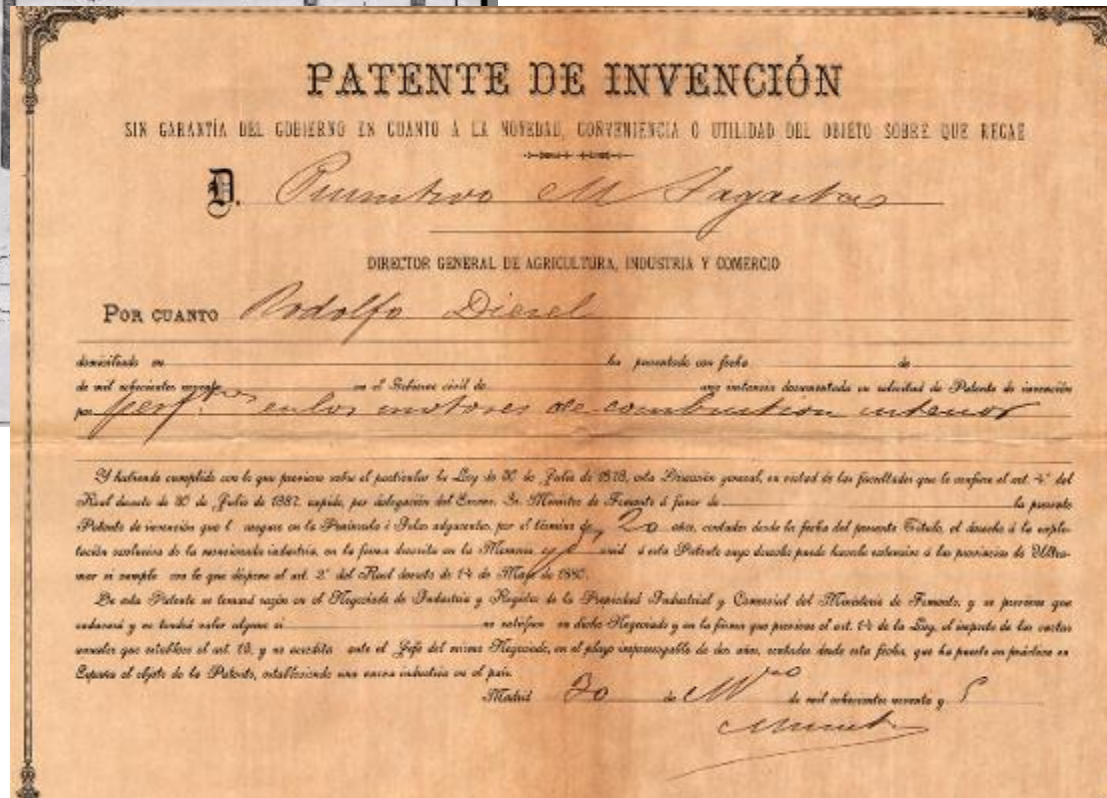 PATENTE DE INVENCIÓN
SIN GARANTÍA DEL GOBIERNO EN CUANTO A LA NOVEDAD, CONVENIENCIA O UTILIDAD DEL OBJETO SOBRE QUE RECAE
D. Primitivo M Sagasta
DIRECTOR GENERAL DE AGRICULTURA, INDUSTRIA Y COMERCIO
POR CUANTO Rodolfo Diesel
domiciliado en ha presentado con fecha de
de mil ochocientos noventa en el Gobierno civil de una instancia documentada en solicitud de Patente de invención
por perf.tos en los motores de combustion interior
Y habiendo cumplido con lo que previene sobre el particular la Ley de 30 de Julio de 1878, esta Dirección general, en virtud de las facultades que le confiere el art. 4.º del
Real decreto de 30 de Julio de 1887, expide, por delegación del Excmo. Sr. Ministro de Fomento á favor de la presente
Patente de invención que l asegure en la Península é Islas adyacentes, por el término de 20 años, contados desde la fecha del presente Título, el derecho á la explo-
tación exclusiva de la mencionada industria, en la forma descrita en la Memoria unid á esta Patente cuyo derecho puede hacerlo extensivo á las provincias de Ultra-
mar si cumple con lo que dispone el art. 2.º del Real decreto de 14 de Mayo de 1880.
De esta Patente se tomará razón en el Negociado de Industria y Registro de la Propiedad Industrial y Comercial del Ministerio de Fomento, y se previene que
caducará y no tendrá valor alguno si no satisface en dicho Negociado y en la forma que previene el art. 14 de la Ley, el importe de las cuotas
anuales que establece el art. 13, y no acredita ante el Jefe del mismo Negociado, en el plazo improrrogable de dos años, contados desde esta fecha, que ha puesto en práctica en
España el objeto de la Patente, estableciendo una nueva industria en el país.
Madrid 30 de de mil ochocientos noventa y 5